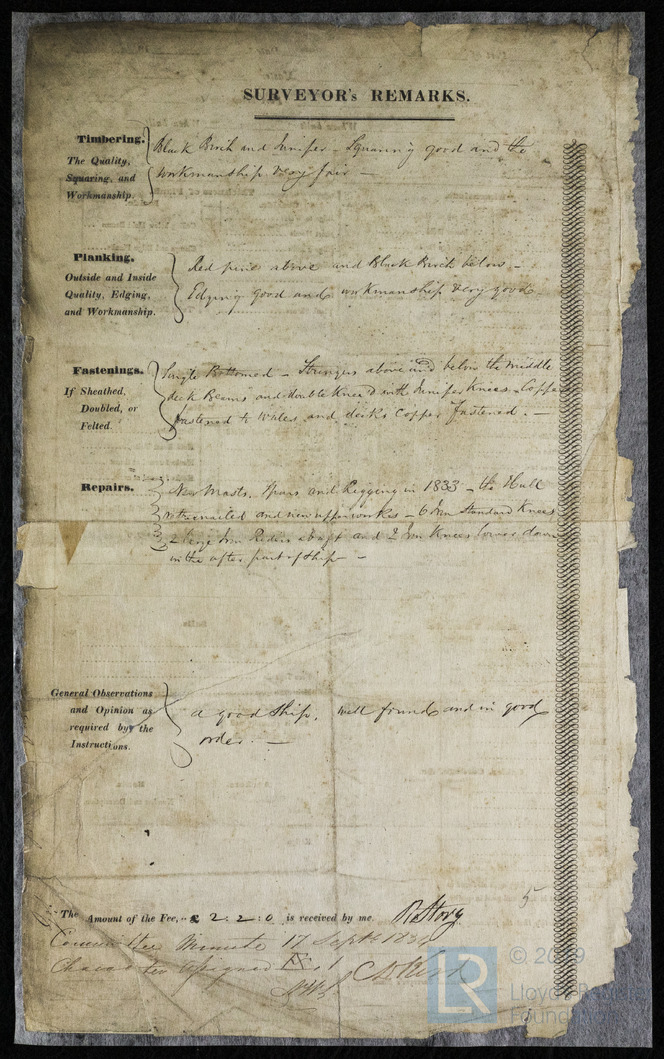 SURVEYOR's REMARKS.
Timbering.
The Quality,
Squaring, and
Workmanship.
Black Birch and Juniper – Squaring good and the
workmanship very fair –
Planking.
Outside and Inside
Quality, Edging,
and Workmanship.
Red pine above and Black Birch below –
Edging good and workmanship very good
Fastenings.
If Sheathed,
Doubled, or
Felted.
Single Bottomed – Stringers above and below the middle
deck Beams and double Knee'd with Juniper Knees – Copper
fastened to Wales and decks Copper fastened. –
Repairs.
New Masts, Spars and Rigging in 1833 – the Hull
and new upperworks – 6 Iron Standard Knees
2 long Iron Riders abaft and 2 Iron Knees lower down
in the after part of ship –
General Observations
and Opinion as
required by the
Instructions.
a good Ship, well found and in good
order. –
5
The Amount of the Fee, £ 2: 2: 0 is received by me,
Committee Minute 17 Septr
Character Assigned
LR
© 2019
Lloyd's Register
Foundation